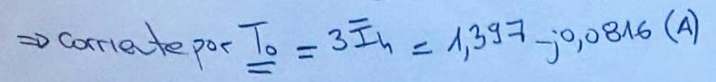 ⇒ corriente por T₀ = 3Ī_h = 1,397 - j0,0816 (A)